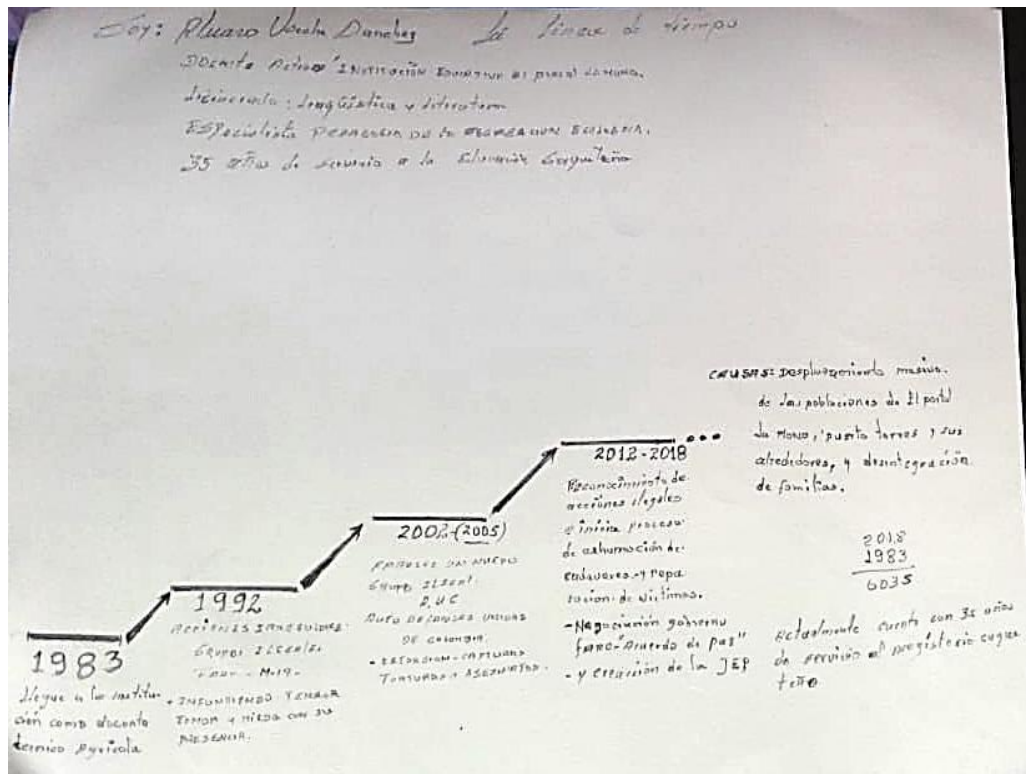 Soy: Alvaro Sanchez La linea de tiempo
Docente Activo "Institución Educativa El portal la mono.
Licenciado: Lingüística y literatura
Especialista Pedagogia de la recreacion ecologica.
35 años de servicio a la Educación Caqueteña
1983
llegue a la institu-
ción como docente
tecnico Agricola
1992
Acciones Irregulares.
Grupos ilegales.
Farc - M-19.
• Infundiendo Terror
Temor y miedo con su
presencia.
2002-(2005)
un nuevo
Grupo ilegal.
A.U.C
Auto Defensas Unidas
de Colombia.
• Extorsion - capturas
Torturas y asesinatos.
2012-2018
Reconocimiento de
acciones ilegales
e inicia proceso
de exhumación de
cadaveres y repa
racion de victimas.
- Negociación gobierno
farc "Acuerdo de paz"
- y creación de la JEP
CAUSAS: Desplazamiento masivo.
de las poblaciones de El portal
la Mono, puerto torres y sus
alrededores, y desintegración
de familias.
2018
1983
6035
Actualmente cuento con 35 años
de servicio al magisterio caque
teño